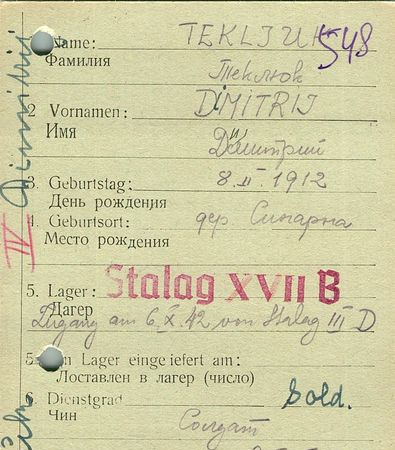 Name: TEKLJUK 548
Фамилия Теклюк
2 Vornamen: DIMITRIJ
Имя Дмитрий
3. Geburtstag: 8.II.1912
День рождения
4. Geburtsort: дер. Синарна
Место рождения
5. Lager: Stalag XVII B
Лагерь
Zugang am 6.X.42 von Stalag III D
5 Lager eingeliefert am:
Доставлен в лагерь (число)
6. Dienstgrad Sold.
Чин Солдат
IV Dimitrij